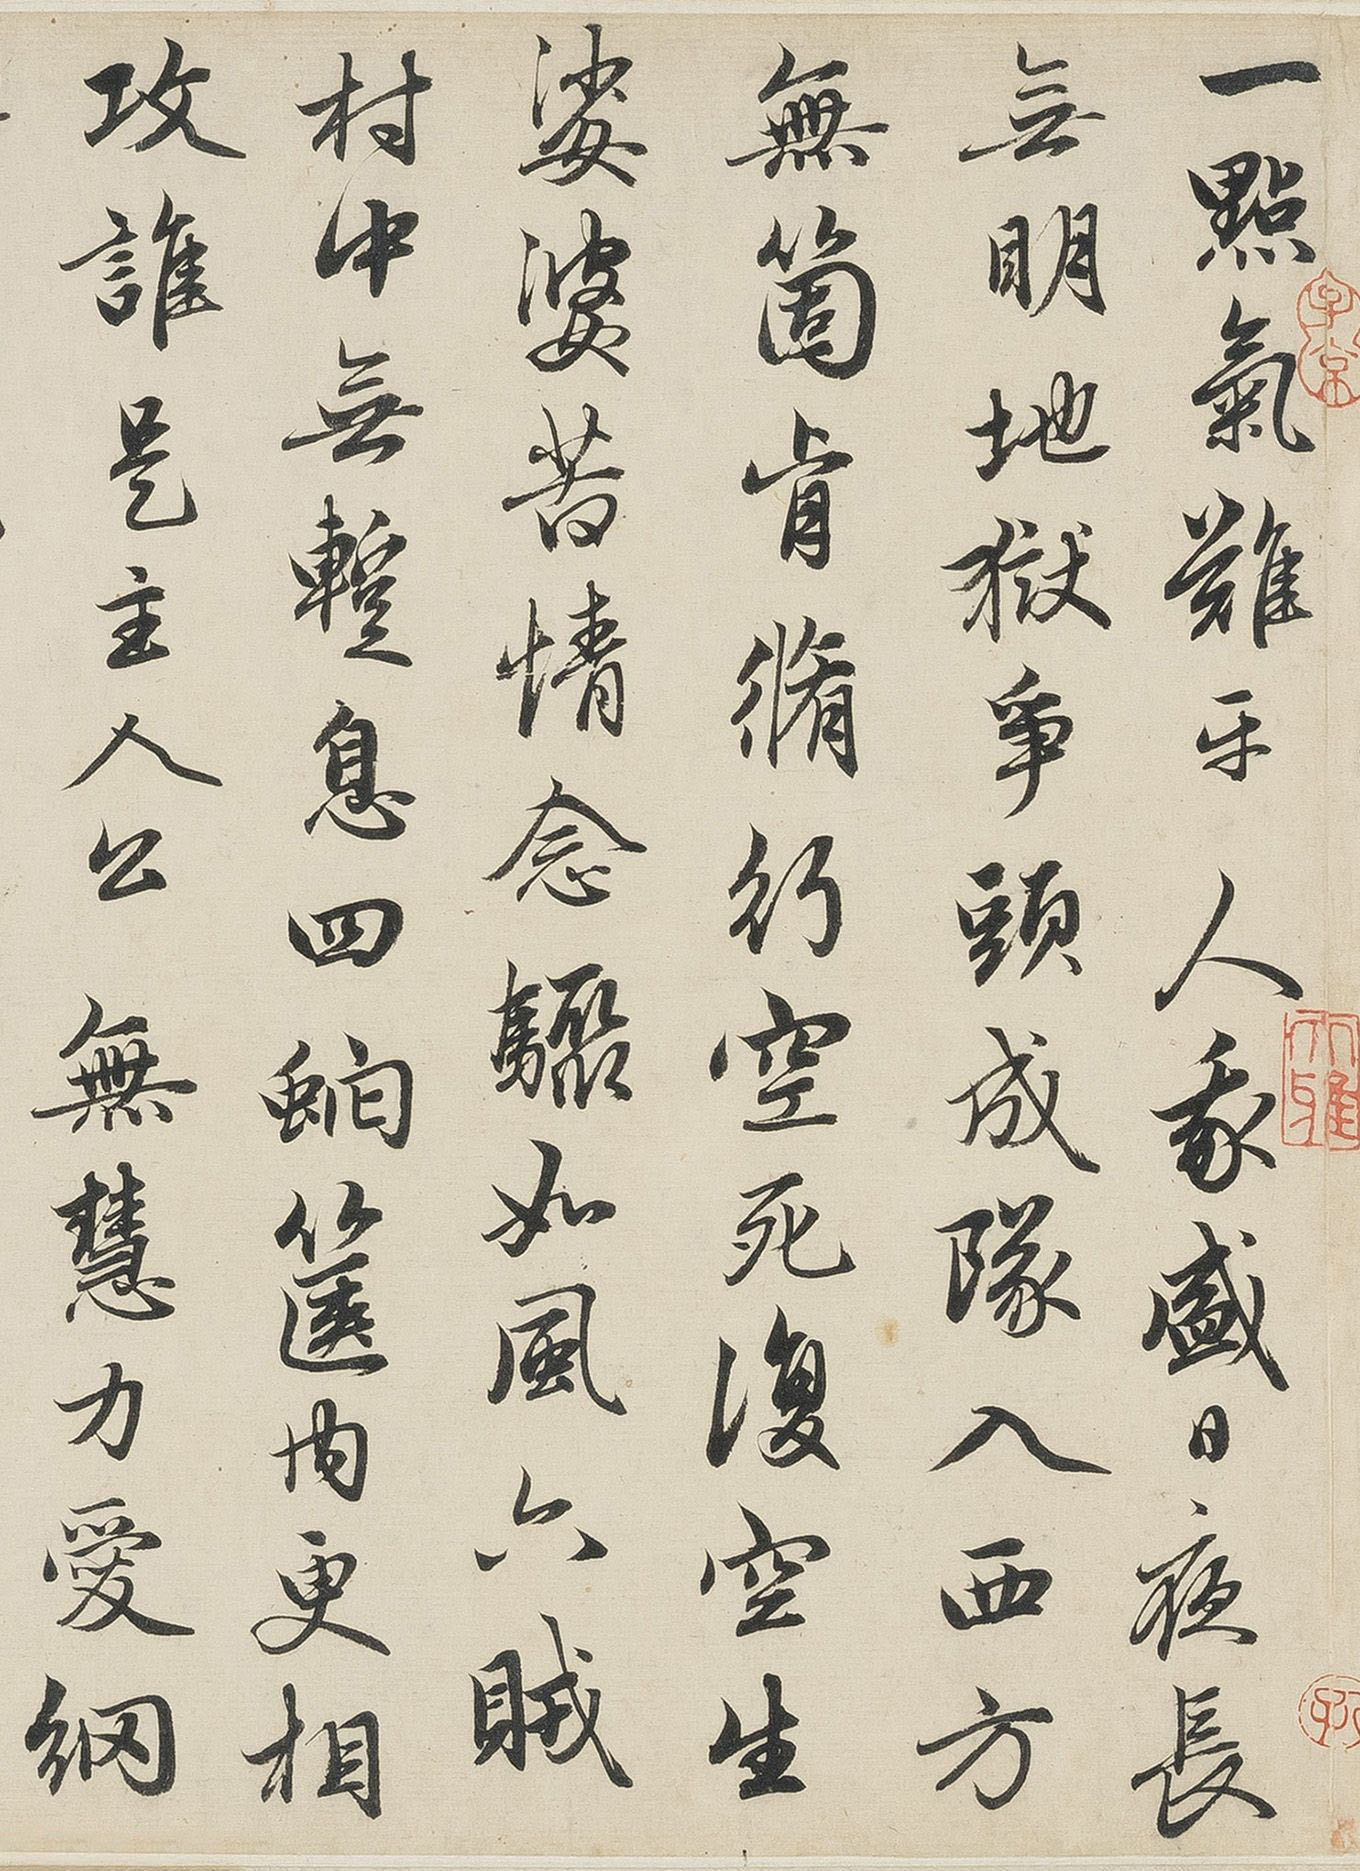 一點氣難平人我盛日夜長
無明地獄爭頭成隊入西方
無箇肯脩行空死復空生
娑婆苦情念驟如風六賊
村中無蹔息四虵篋内更相
攻誰是主人公 無慧力愛網
子京
大雅